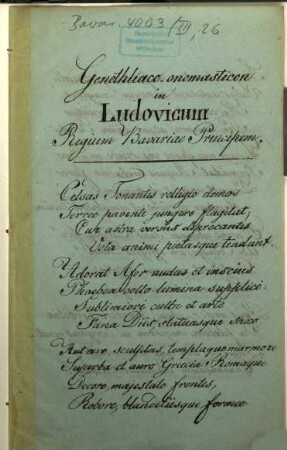 Bavar. 4003 (III, 26
Genethliaco-onomasticon
in
Ludovicum
Regium Bavariae Principem.
Celsas Tonantis relligio domos
Terrae pavente jungere flagitat,
Cur astra versus deprecantis
Vota animi, pietasque tendunt.
Adorat Afer nudus et inscius
Phoebea volto lumina supplici
Sublimiori cultu et arte
Fana Diis, statuasque saxo
Aut aere sculptas, templaque marmore
Superba et auro Graecia Romaque
Decore, majestate frontis,
Robore, blanditiisque formae